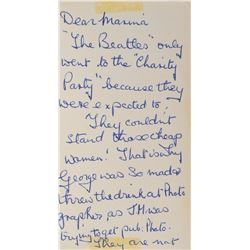 Dear Marina
"The Beatles" only
went to the "Charity
Party" because they
were expected to.
They couldn't
stand those cheap
women! That is why
George was so mad &
threw the drink at Photo
grapher, as JM was
trying to get pub. Photo.
They are not